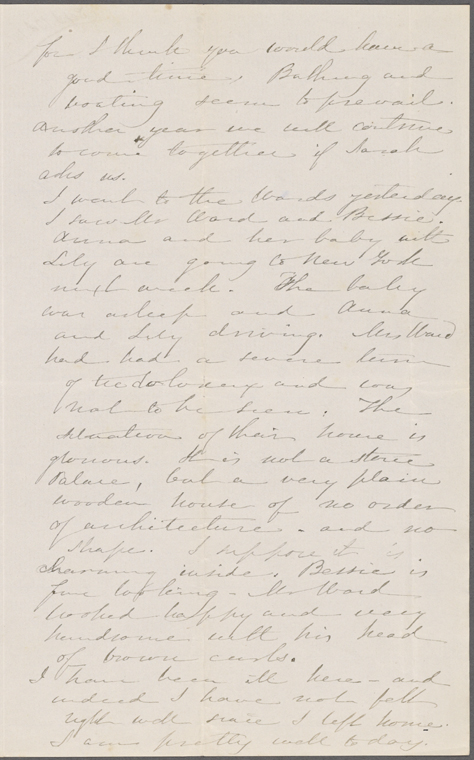 for I think you would have a
good time. Bathing and
boating seem to prevail.
Another year we will contrive
to come together if Sarah
asks us.
I went to the Wards yesterday.
I saw Mr Ward and Bessie.
Anna and her baby with
Lily are going to New York
next week. The baby
was asleep and Anna
and Lily driving. Mrs Ward
had had a severe turn
of tic doloureux and was
not to be seen. The
situation of their house is
glorious. It is not a stone
Palace, but a very plain
wooden house of no order
of architecture - and no
shape. I suppose it is
charming inside. Bessie is
fine looking - Mr Ward
looked happy and very
handsome with his head
of brown curls.
I have been ill here - and
indeed I have not felt
right well since I left home.
I am pretty well to day.